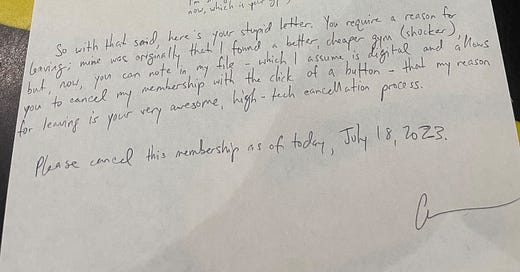 now, which is
So with that said, here's your stupid letter. You require a reason for
leaving; mine was originally that I found a better, cheaper gym (shocker),
but, now, you can note in my file - which I assume is digital and allows
you to cancel my membership with the click of a button - that my reason
for leaving is your very awesome, high-tech cancellation process.
Please cancel this membership as of today, July 18, 2023.